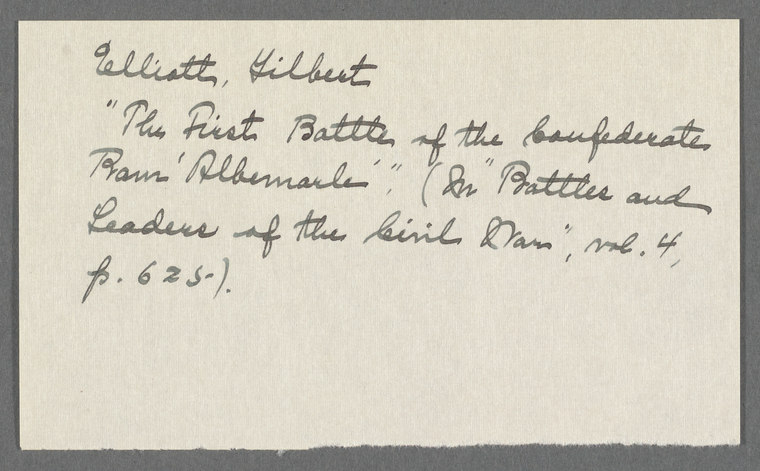 Elliott, Gilbert
"The First Battle of the Confederate
Ram 'Albemarle'". (In "Battles and
Leaders of the Civil War", vol. 4,
p. 625).